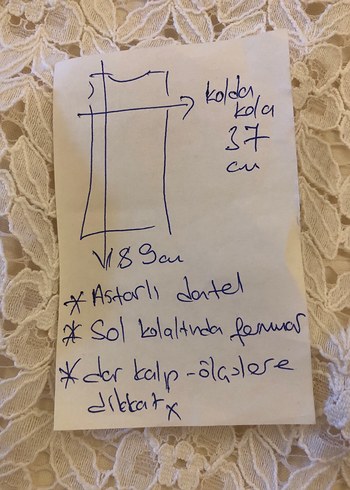 kolda
kola
37
cm
89cm
* Astarlı dantel
* Sol kolaltında fermuar
* dar kalıp - ölçülere
dikkat x